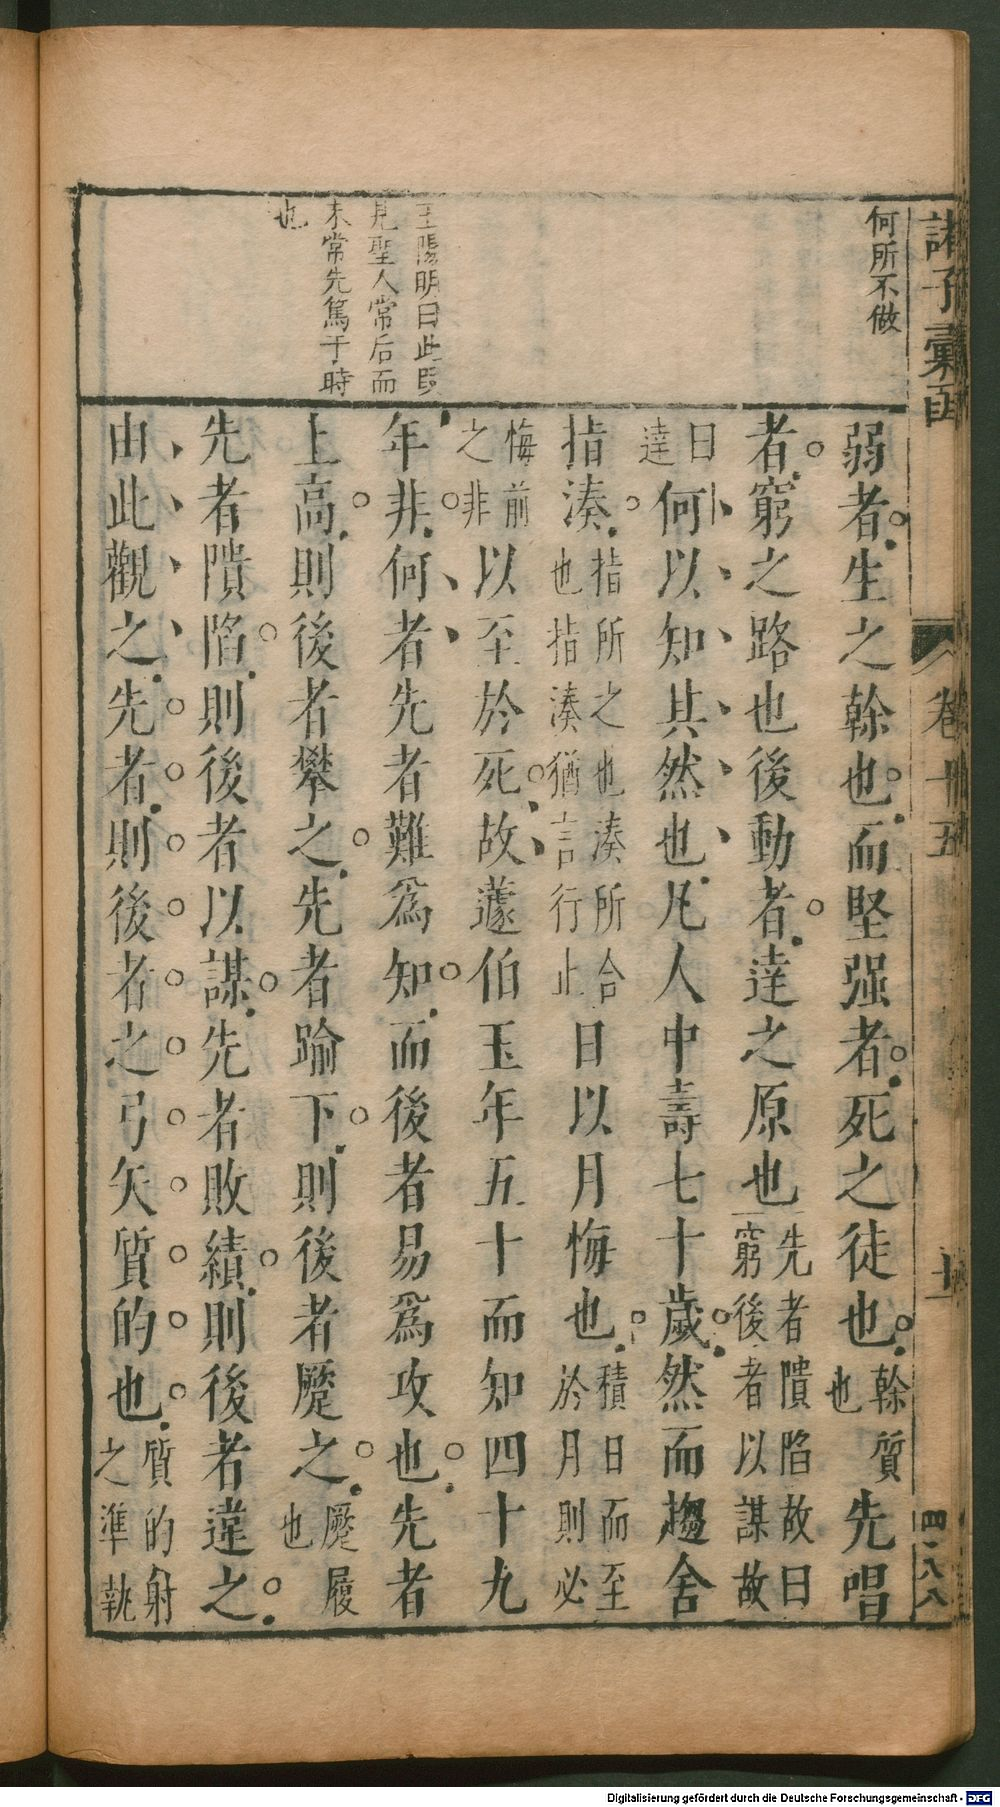 諸子彙函
卷十五
十一
四八八
何所不做
王陽明曰此既
見聖人常后而
未常先篤于時
也
弱者生之榦也而堅强者死之徒也榦質也先唱
者窮之路也後動者達之原也先者隤陷故曰窮後者以謀故
曰達何以知其然也凡人中壽七十歲然而趨舍
指湊指所之也湊所合也指湊猶言行止日以月悔也積日而至於月則必
悔前之非以至於死故蘧伯玉年五十而知四十九
年非何者先者難爲知而後者易爲攻也先者
上高則後者攀之先者踰下則後者蹷之蹷履也
先者隤陷則後者以謀先者敗績則後者違之
由此觀之先者則後者之弓矢質的也質的射之準執
Digitalisierung gefördert durch die Deutsche Forschungsgemeinschaft - DFG